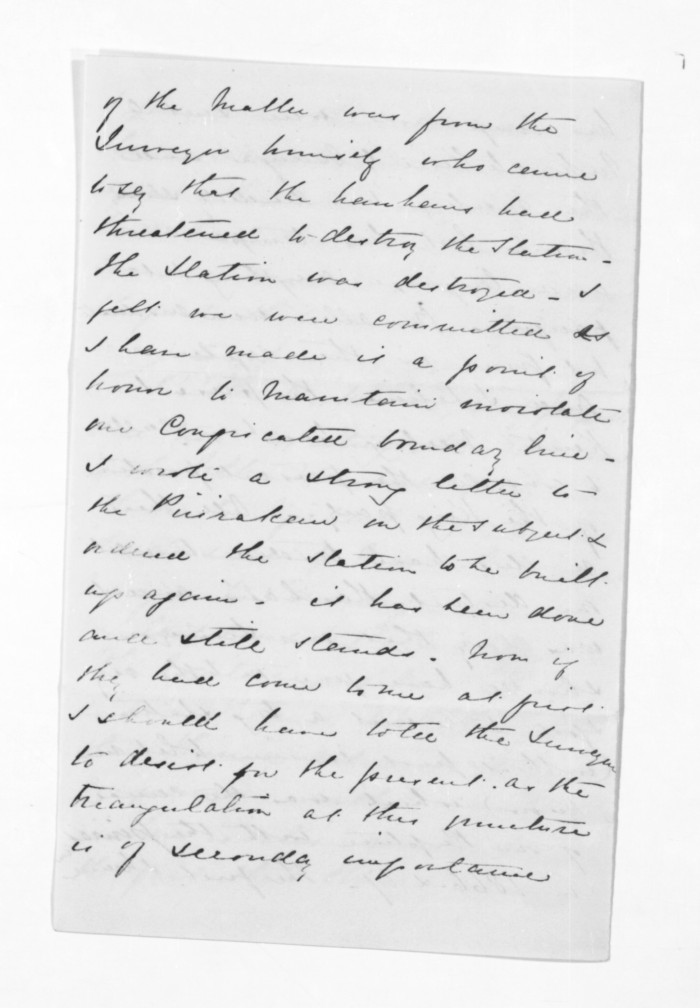 of the matter was from the
Surveyor himself who came
to say that the hauhaus had
threatened to destroy the Station -
the Station was destroyed - I
felt we were committed as
I have made it a point of
honor to maintain inviolate
our Confiscated boundary line -
I wrote a strong letter to
the Piirakau on the subject &
ordered the station to be built
up again - it has been done
and still stands. Now if
they had come to me at first
I should have told the Surveyor
to desist for the present. as the
triangulation at this juncture
is of secondary importance